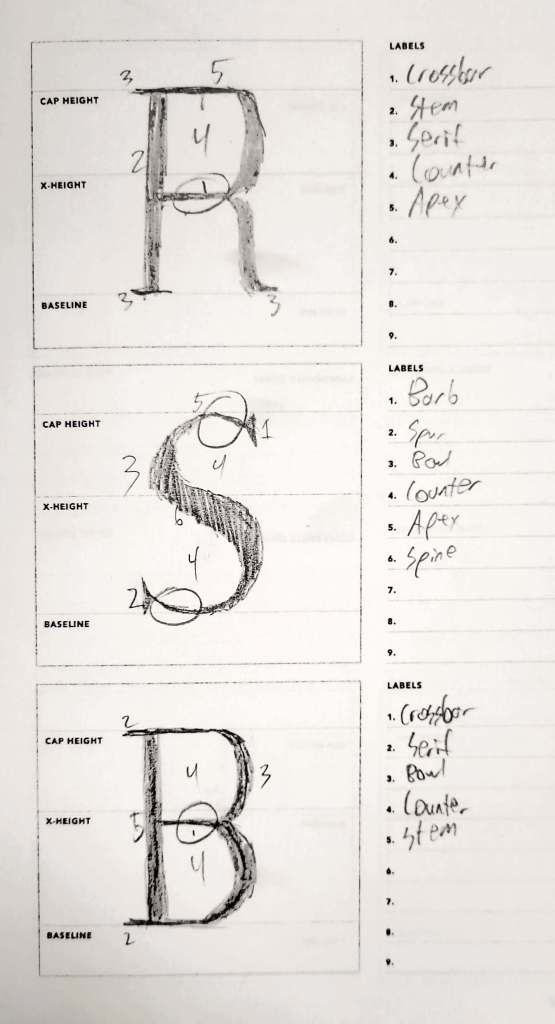 LABELS
3 5
CAP HEIGHT
1
4
2
X-HEIGHT
1
BASELINE
3 3
1. Crossbar
2. Stem
3. Serif
4. Counter
5. Apex
6.
7.
8.
9.
R
LABELS
5
CAP HEIGHT
1
3 4
X-HEIGHT
6
4
2
BASELINE
1. Barb
2. Spur
3. Bowl
4. Counter
5. Apex
6. Spine
7.
8.
9.
S
LABELS
2
CAP HEIGHT
4 3
X-HEIGHT
5 1
4
BASELINE
2
1. Crossbar
2. Serif
3. Bowl
4. Counter
5. Stem
6.
7.
8.
9.
B